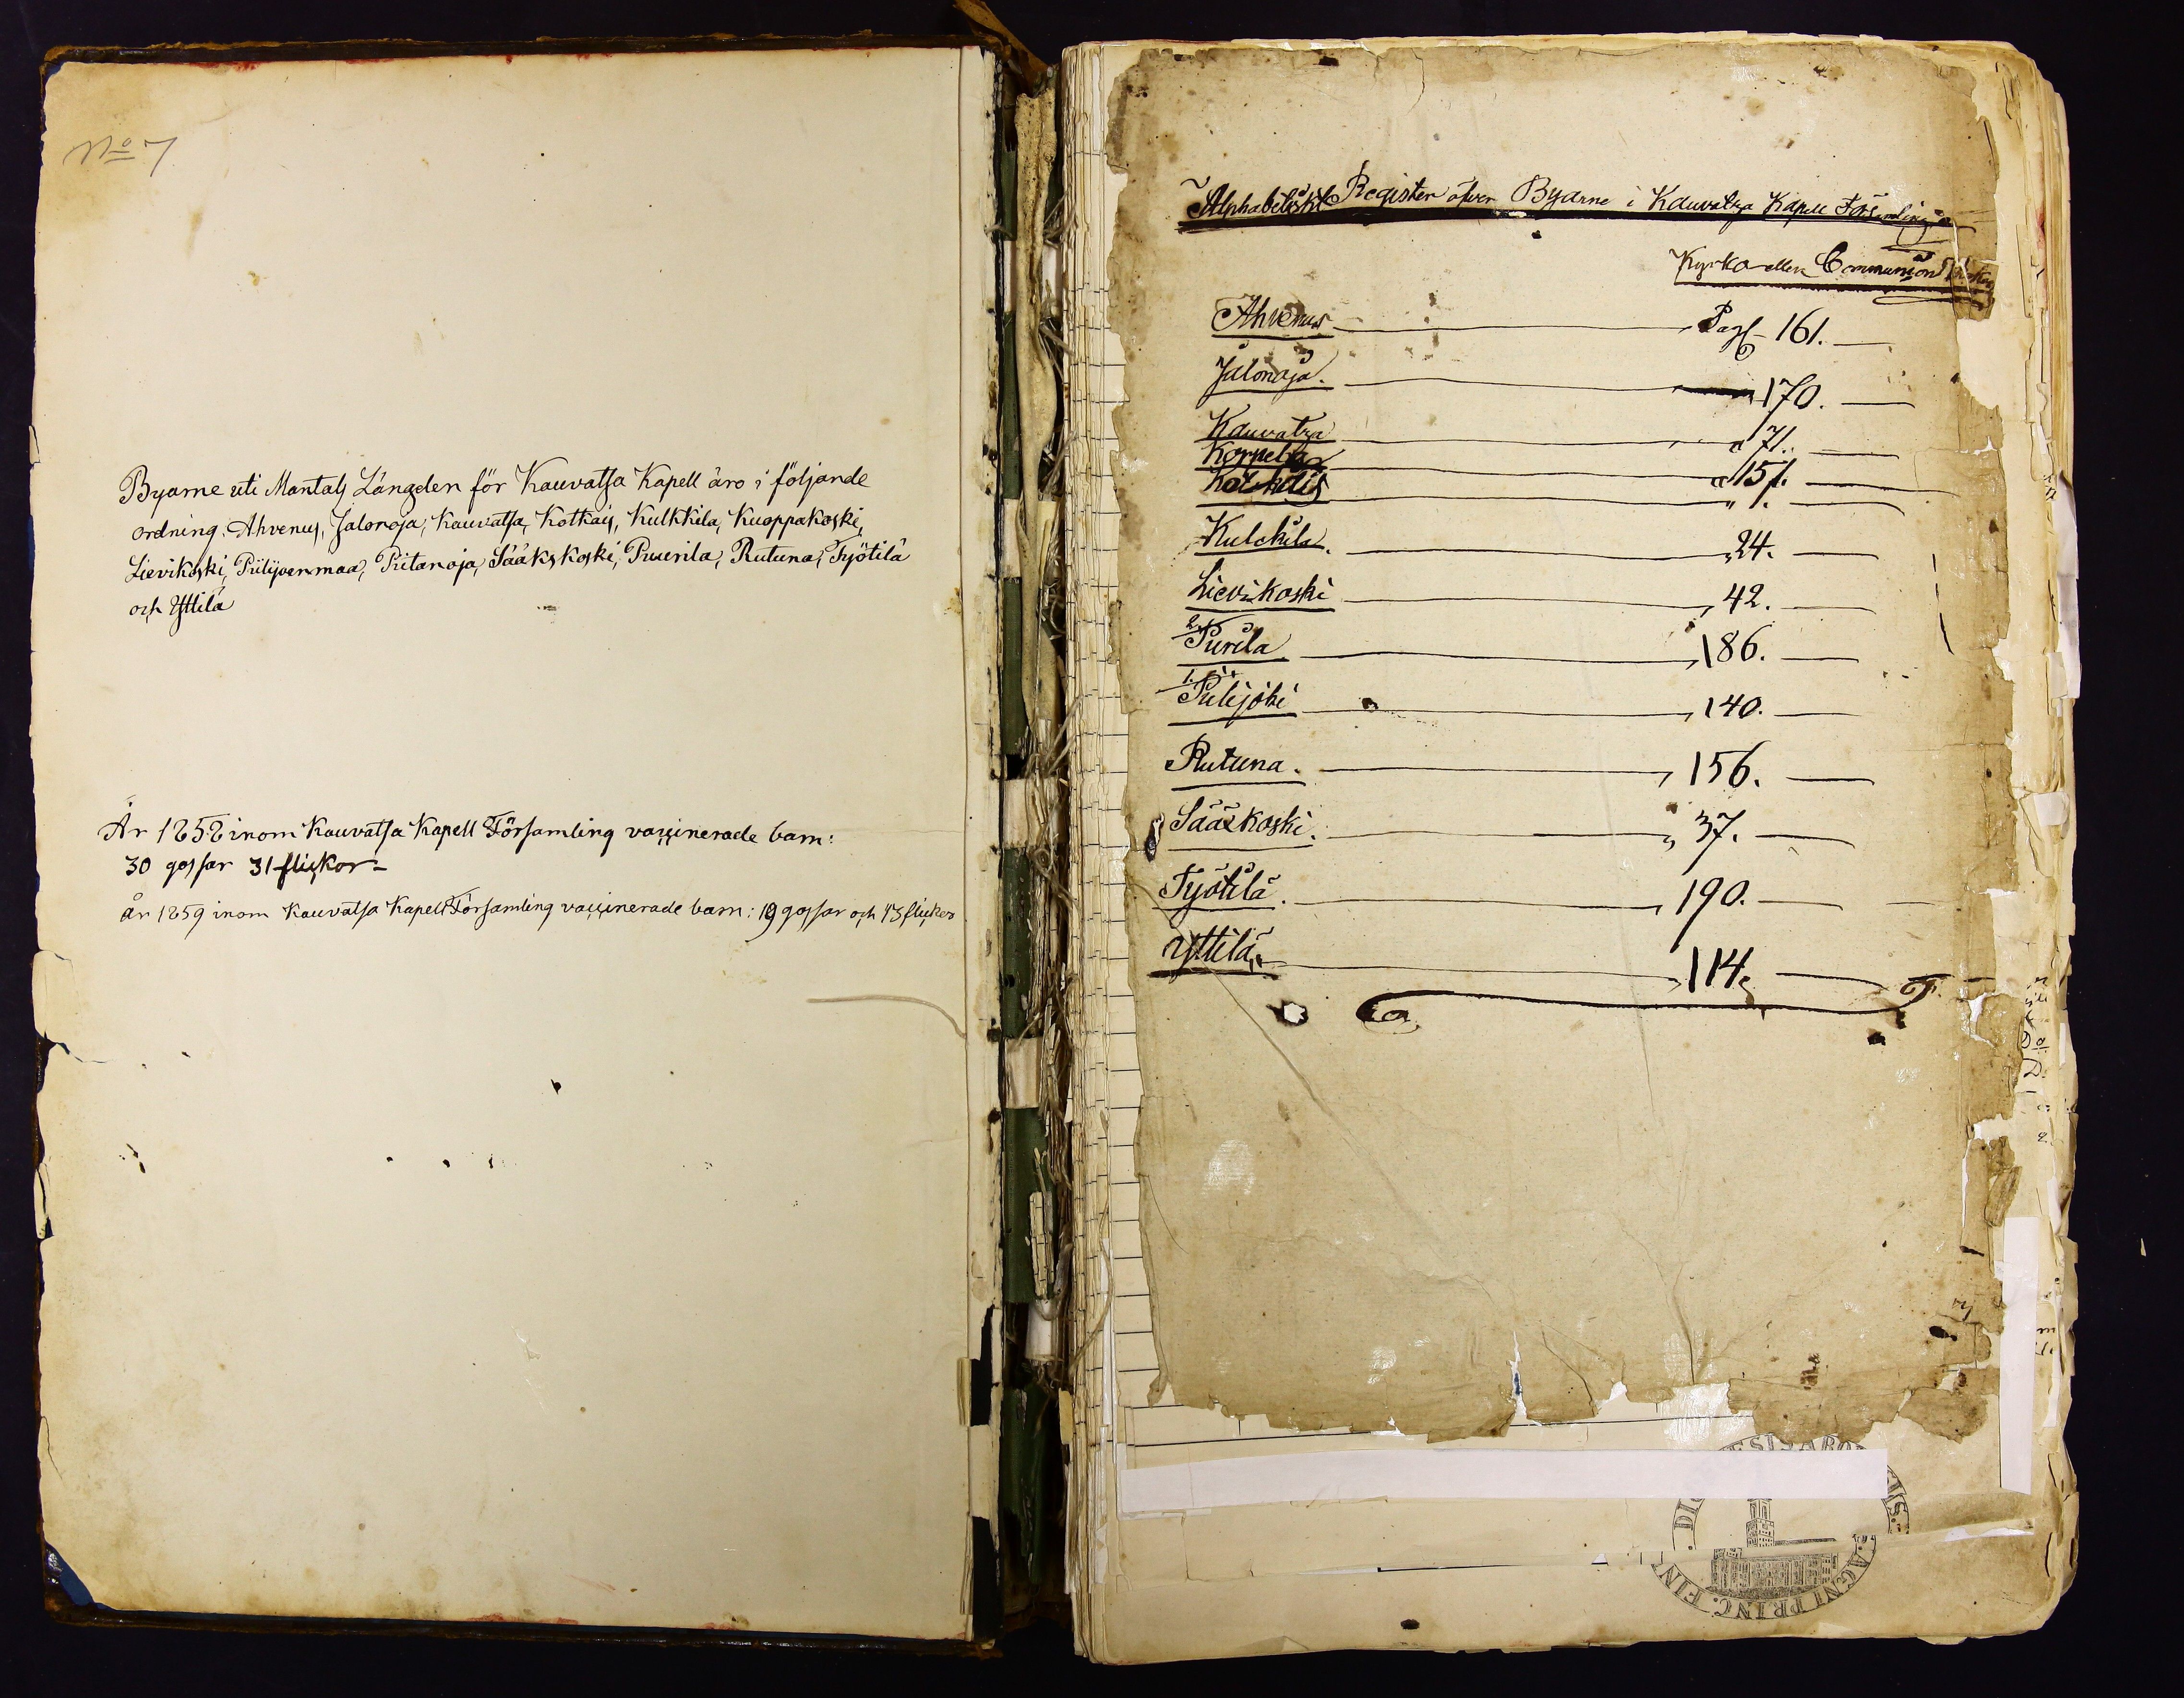 No 7
Byarne uti Mantals Längden för Kauvatsa Kapell äro i följande
ordning: Ahvenus, Jalonoja, Kauvatsa, Kotkais, Kulkkila, Kuoppakoski,
Lievikoski, Piilijoenmaa, Piitanoja, Sääkskoski, Puurila, Rutuna, Työtilä
och Yttilä
År 1858 inom Kauvatsa Kapell Församling vaccinerade barn:
30 gossar 31 flickor
År 1859 inom Kauvatsa Kapell Församling vaccinerade barn: 19 gossar och 43 flickor
Alphabetiskt Register öfver Byarne i Kauvatza Kapell Församling
Kyrko eller Communion Boken
Ahvenus Pag 161.
Jalonoja. 170.
Kauvatza " 71.
Korpela " 151.
" 1.
Kulckila. " 24.
Lievikoski " 42.
2. Purila " 186.
1. Piilijoki " 140.
Rutuna. " 156.
Sääxkoski. " 37.
Työtilä. " 190.
Yttilä. " 114.